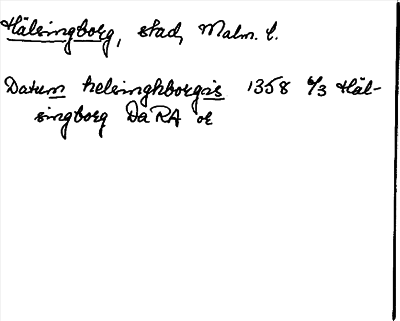 Hälsingborg, stad, Malm. l.
Datum helsinghborgis 1358 6/3 Häl-
singborg DaRA or